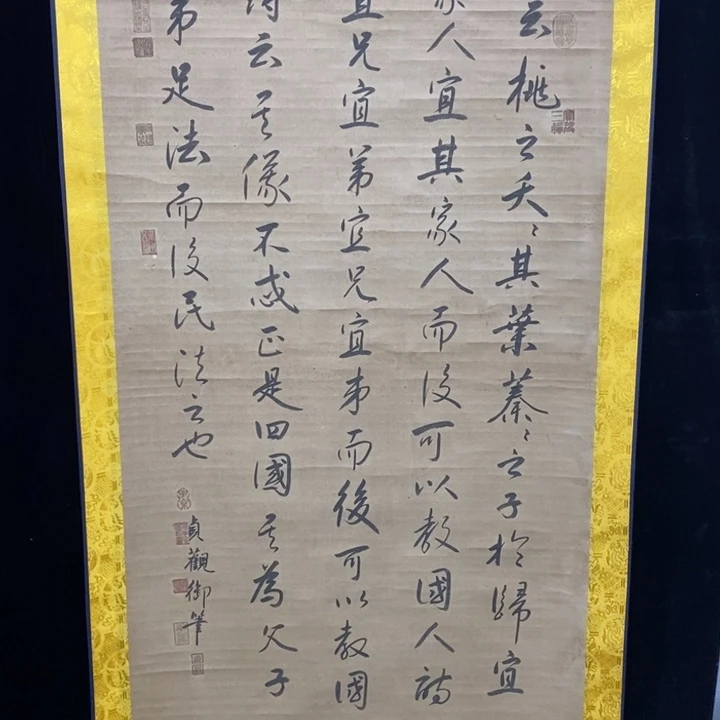 云桃之夭〻其葉蓁〻之子於歸宜
家人宜其家人而後可以教國人詩
宜兄宜弟宜兄宜弟而後可以教國
云其儀不忒正是四國其為父子
弟足法而後民法之也
貞觀御筆